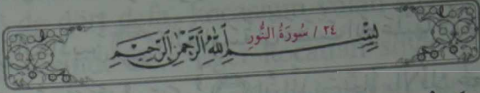 ٢٤ / سُورَةُ النُّورِ
بِسْمِ اللَّهِ الرَّحْمَٰنِ الرَّحِيمِ